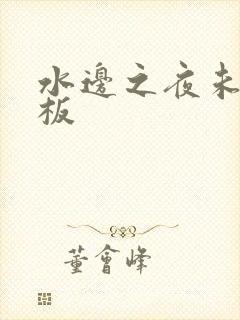 水邊之夜未
板
董會峰